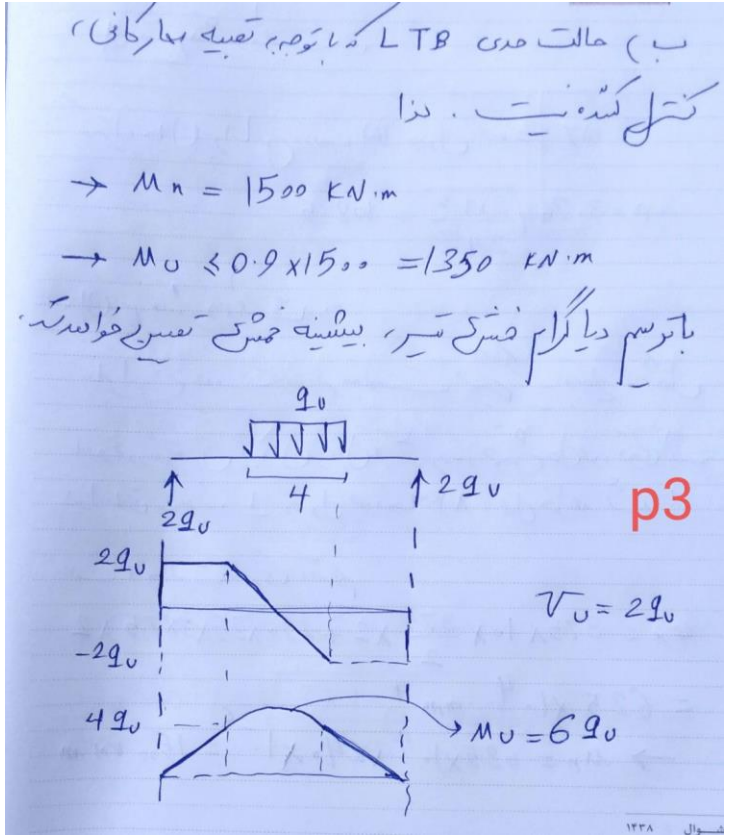 ب) حالت حدی LTB که با توجه به تعبیه مهار کافی،
کنترل کننده نیست. لذا
→ Mn = 1500 KN.m
→ Mu ≤ 0.9 x 1500 = 1350 KN.m
با ترسیم دیاگرام خمشی تیر، بیشینه خمشی تعیین خواهد شد.
qu
4
2qu
2qu
p3
2qu
Vu = 2qu
-2qu
4qu
Mu = 6qu
شوال ۱۴۳۸